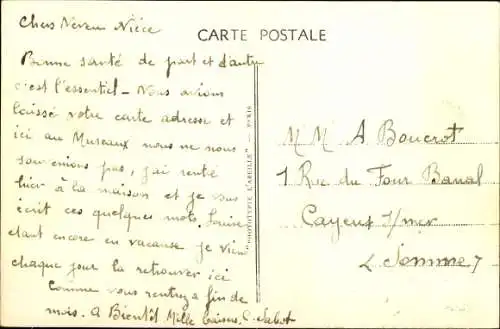 Chers Neveu Nièce
CARTE POSTALE
Bonne santé de part et d'autre
c'est l'essentiel - Nous avions
laissé votre carte adresse et
ici au Mureaux nous ne nous
souvenions pas, j'ai rentré
hier à la maison et je vous
écrit ces quelques mots, Louise
étant encore en vacance je viens
chaque jour la retrouver ici
Comme vous rentrez a fin de
mois. A Bientôt Mille baisers,
PHOTOTYPIE "L'ABEILLE" - PARIS
M M A Boucrot
1 Rue du Four Banal
Cayeux s/mer
Somme